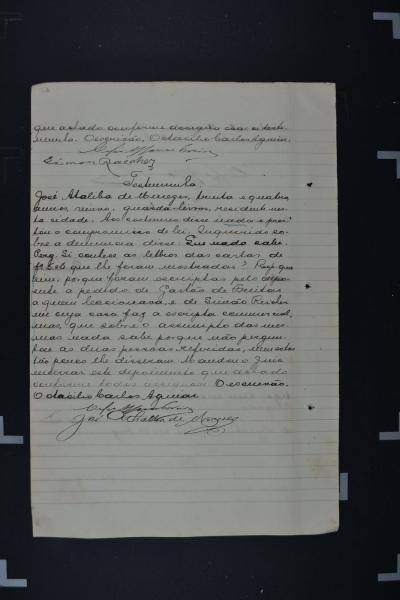 que achado conforme assignão com a teste-
munha. O escrivão, Octacilio Carlos Aguiar.
Simon Raicher
Testemunha.
José Ataliba de Menezes, trinta e quatro
annos, guarda-livros, residente nes-
ta cidade. Aos costumes disse nada e pres-
tou o compromisso de lei. Inquerido so-
bre a denuncia disse: Que nada sabe.
Perg. Si conhece as lettras das cartas de
que lhe foram mostradas? Resp. que
sim, porque foram escriptas pelo depo-
ente a pedido de Gastão de Freitas
a quem leccionava, e de Simão Reicher
em cuja casa faz a escripta commercial,
mas que sobre o assumpto das mes-
mas nada sabe porque não pergun-
tou as duas pessoas referidas, nem estas
tão pouco lhe disseram. Mandou o Juiz
encerrar este depoimento que achado
conforme todos assignam. O escrivão.
Octacilio Carlos Aguiar
José Ataliba de Menezes